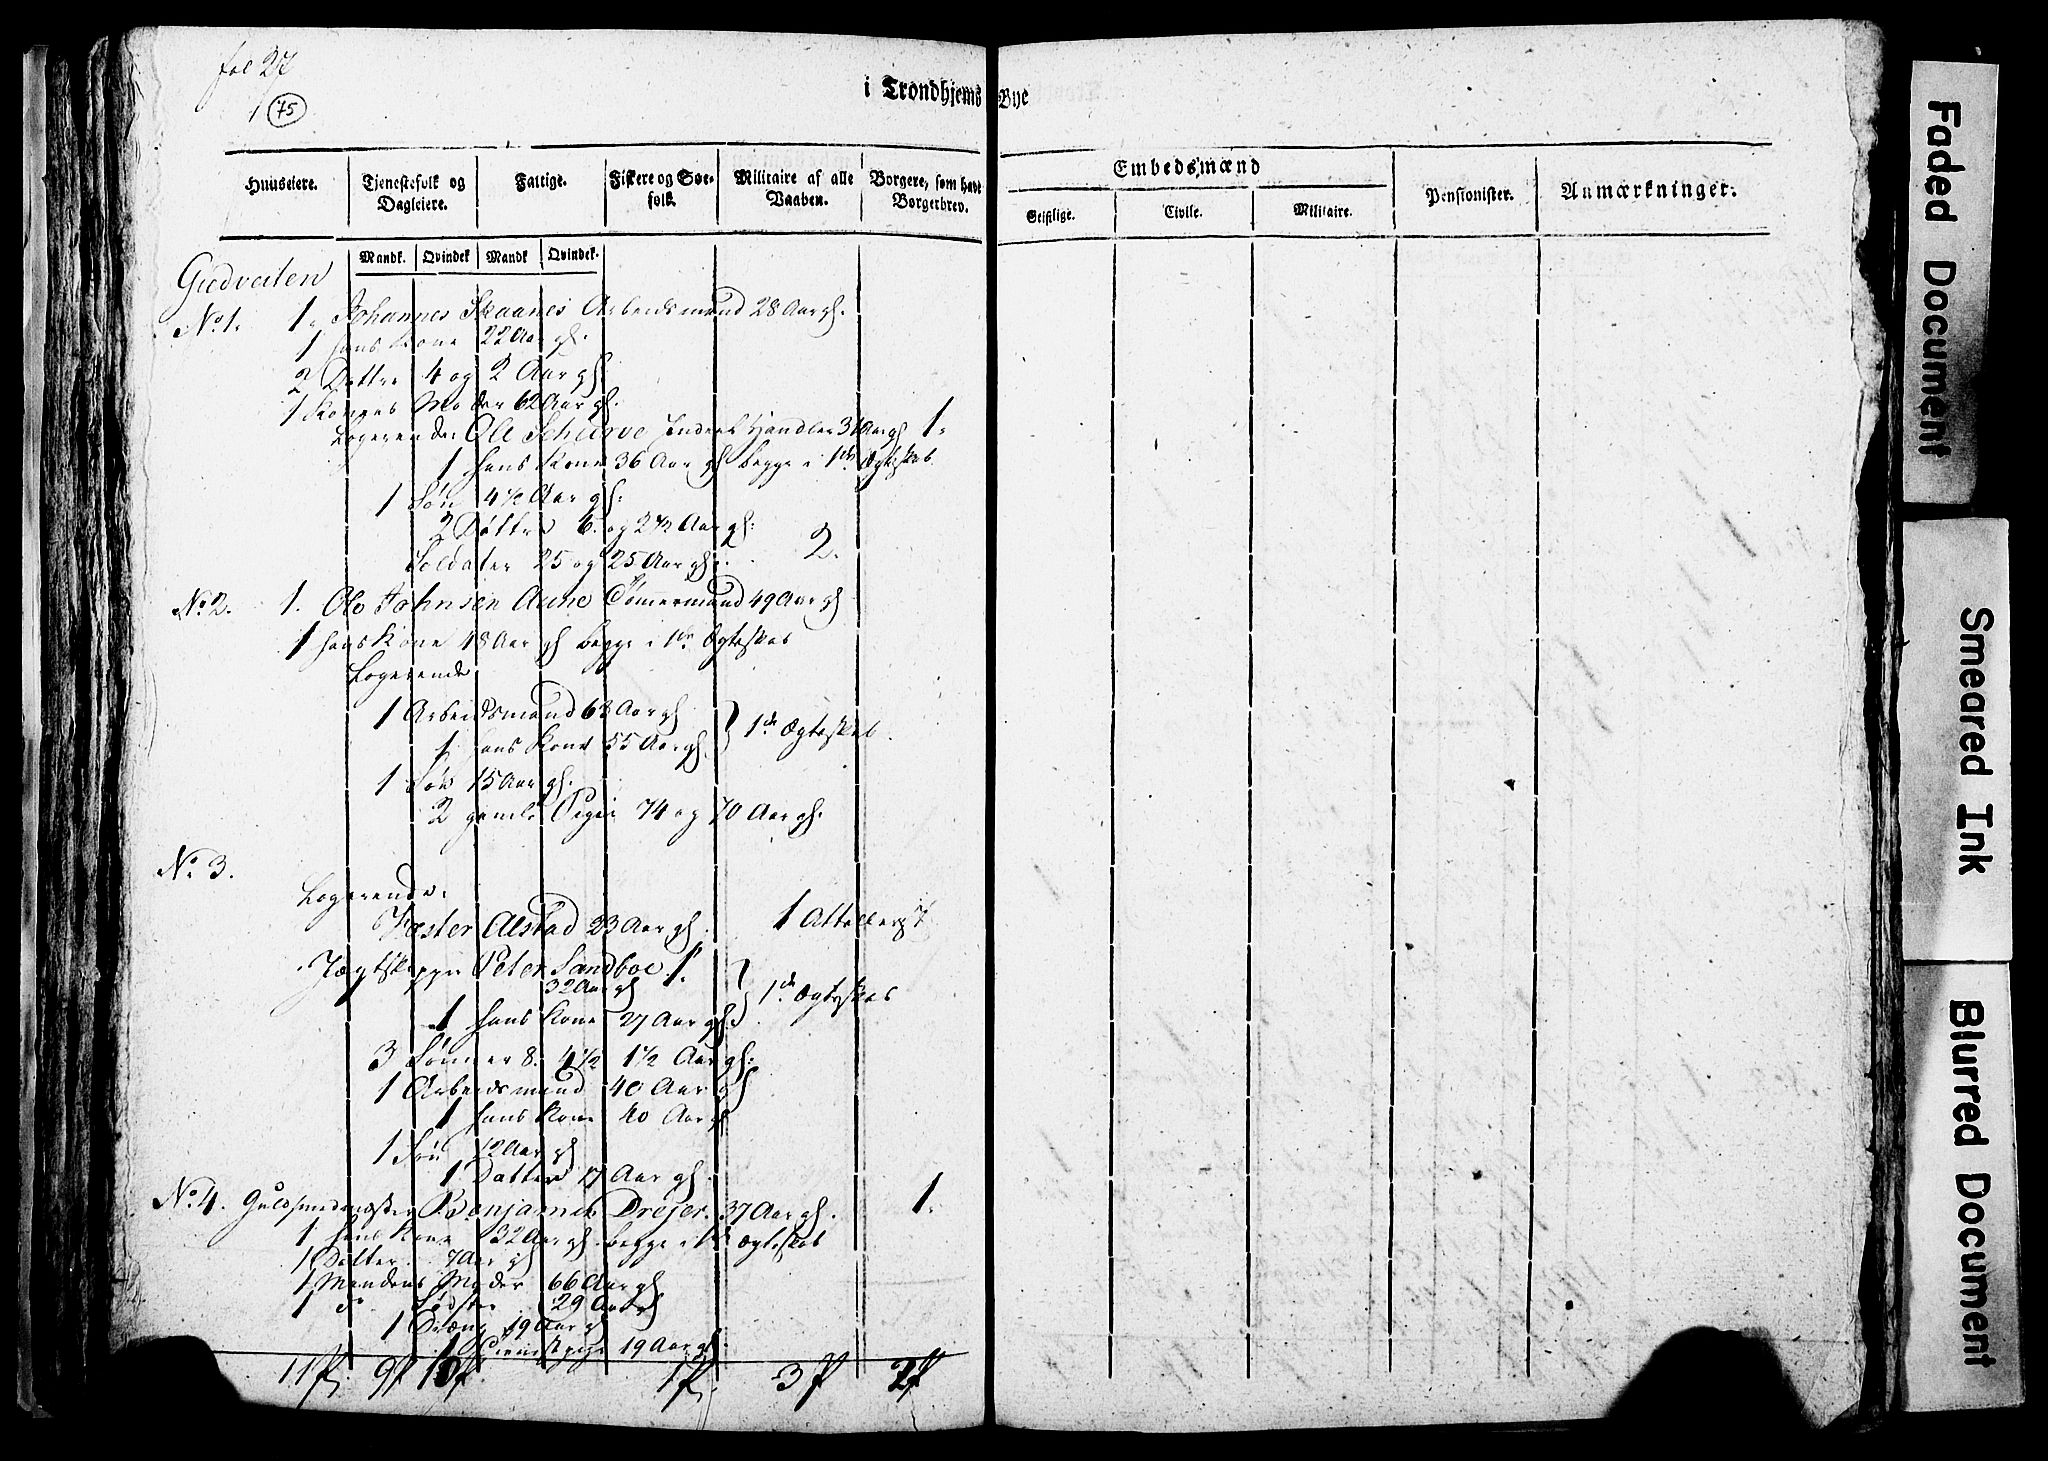 fol 27
75
i Trondhjems Bye
Huuseiere.
Tjenestefolk og Dagleiere.
Fattige.
Fiskere og Søefolk.
Militaire af alle Vaaben.
Borgere, som have Borgerbrev.
Embedsmænd
Geistlige.
Civile.
Militaire.
Pensionister.
Anmærkninger.
Mandk. Qvindek Mandk Qvindek.
Gudveiten
No 1. 1. Johannes Skaanes Arbeidsmand 28 Aar gl.
1 hans Kone 22 Aar gl.
2 Dottre 4 og 2 Aar gl
1 Konens Moder 62 Aar gl.
Logerende: Ole Schurve Handler 31 Aar gl 1.
1 hans Kone 36 Aar gl begge i 1de Ægteskab.
1 Søn 4 1/2 Aar gl:
2 Døttre 6. og 2 1/2 Aar gl:
Soldater 25 og 25 Aar gl. 2.
No 2. 1. Ole Johnsen Aune Tømermand 49 Aar gl
1 hans Kone 48 Aar gl begge i 1de Ægteskab
Logerende
1 Arbeidsmand 68 Aar gl
1 hans Kone 55 Aar gl. } 1de Ægteskab.
1 Søn 15 Aar gl.
2 gamle Piger 74 og 70 Aar gl.
No 3.
Logerende.
Alstad 23 Aar gl. 1
Jægtskipper Peter Sandboe 1.
32 Aar gl } 1de Ægteskab
1 hans Kone 27 Aar gl.
3 Sønner 8. 4 1/2 1 1/2 Aar gl:
1 Arbeidsmand 40 Aar gl
1 hans Kone 40 Aar gl
1 Søn 12 Aar gl
1 Datter 17 Aar gl.
No 4. Guldsmedmester Benjamin Drejer. 37 Aar gl. 1.
1 hans Kone 32 Aar gl. begge i 1de Ægteskab
1 Datter. 7 Aar gl
1 Mandens Moder 66 Aar gl
1 do Søster 29 Aar gl
1 Dræng 19 Aar gl
1 Tienistpige 19 Aar gl.
11 9 10 1 3 2
Faded Document
Smeared Ink
Blurred Document